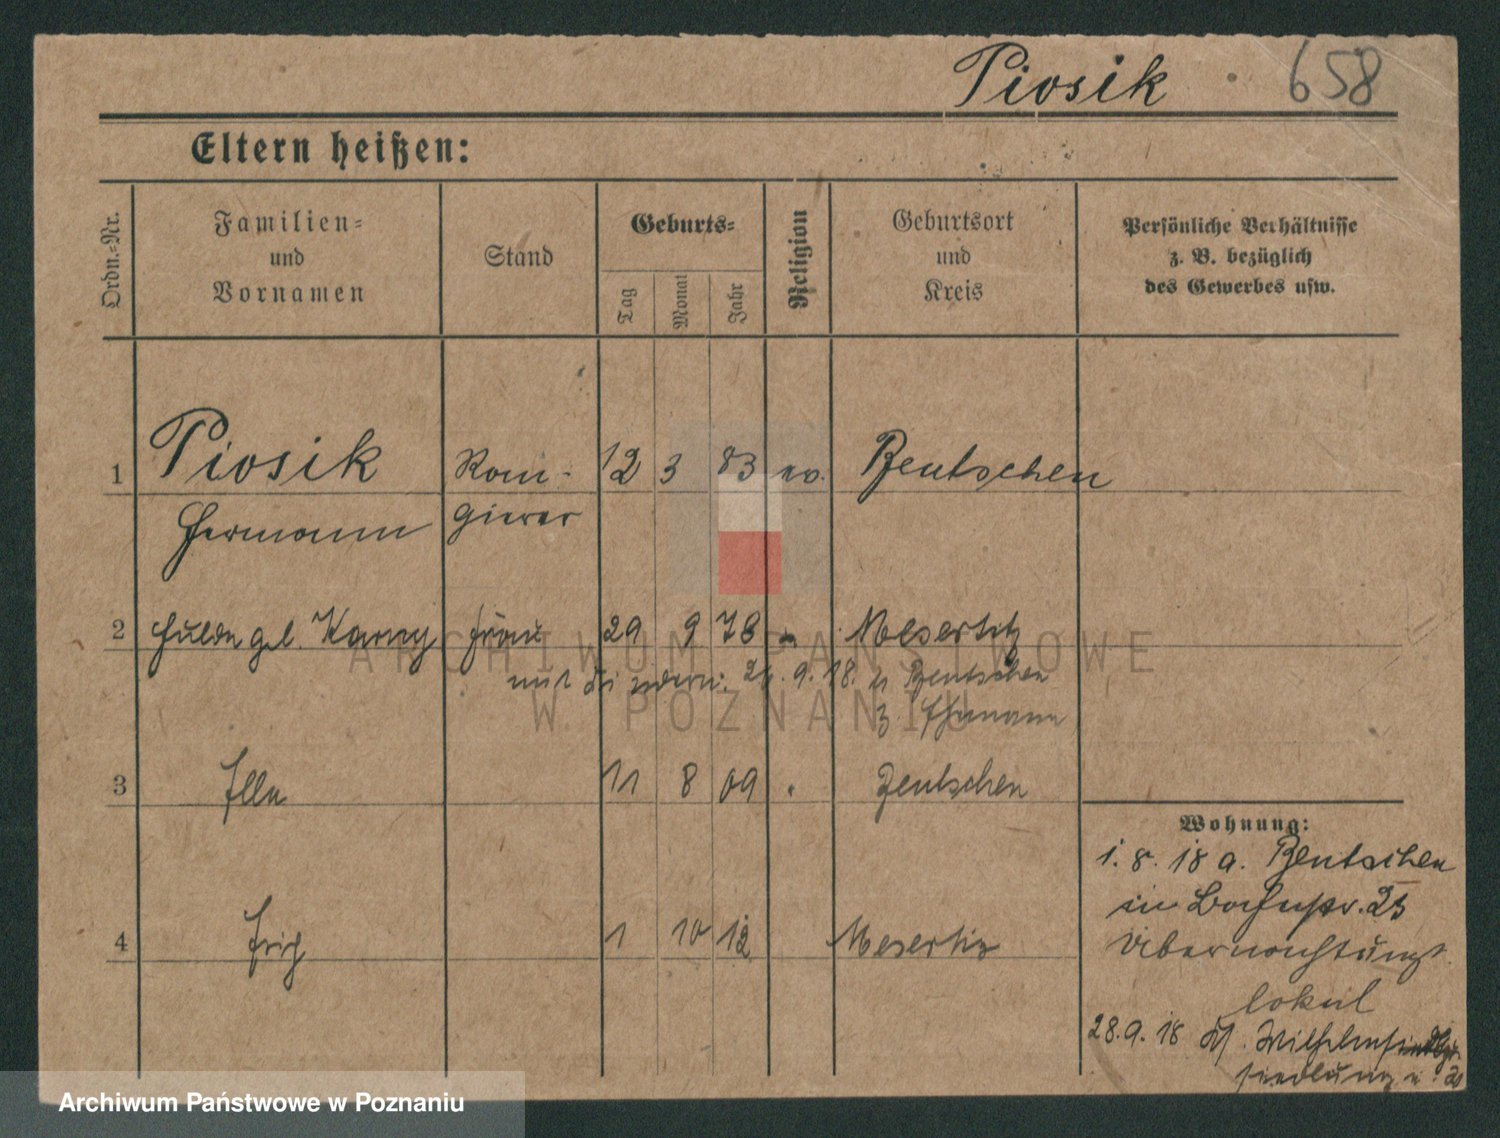 Piosik 658
Eltern heißen:
Ordn.-Nr.
Familien-
und
Vornamen
Stand
Geburts-
Tag
Monat
Jahr
Religion
Geburtsort
und
Kreis
Persönliche Verhältnisse
z. B. bezüglich
des Gewerbes usw.
1 Piosik Ran- 12 3 83 ev. Bentschen
Hermann gierer
2 Hulda geb. Karny Frau 29 9 78 Meseritz
mit Kindern: 9. 18. n Bentschen
z. Ehemann
3 Ella 11 8 09 Bentschen
Wohnung:
1. 8. 18 a. Bentschen
in Bahnstr. 25
Übernachtungs
lokal
4 Erich 1 10 12 Meseritz
28.9.18
siedlung
ARCHIWUM PAŃSTWOWE
W POZNANIU
Archiwum Państwowe w Poznaniu